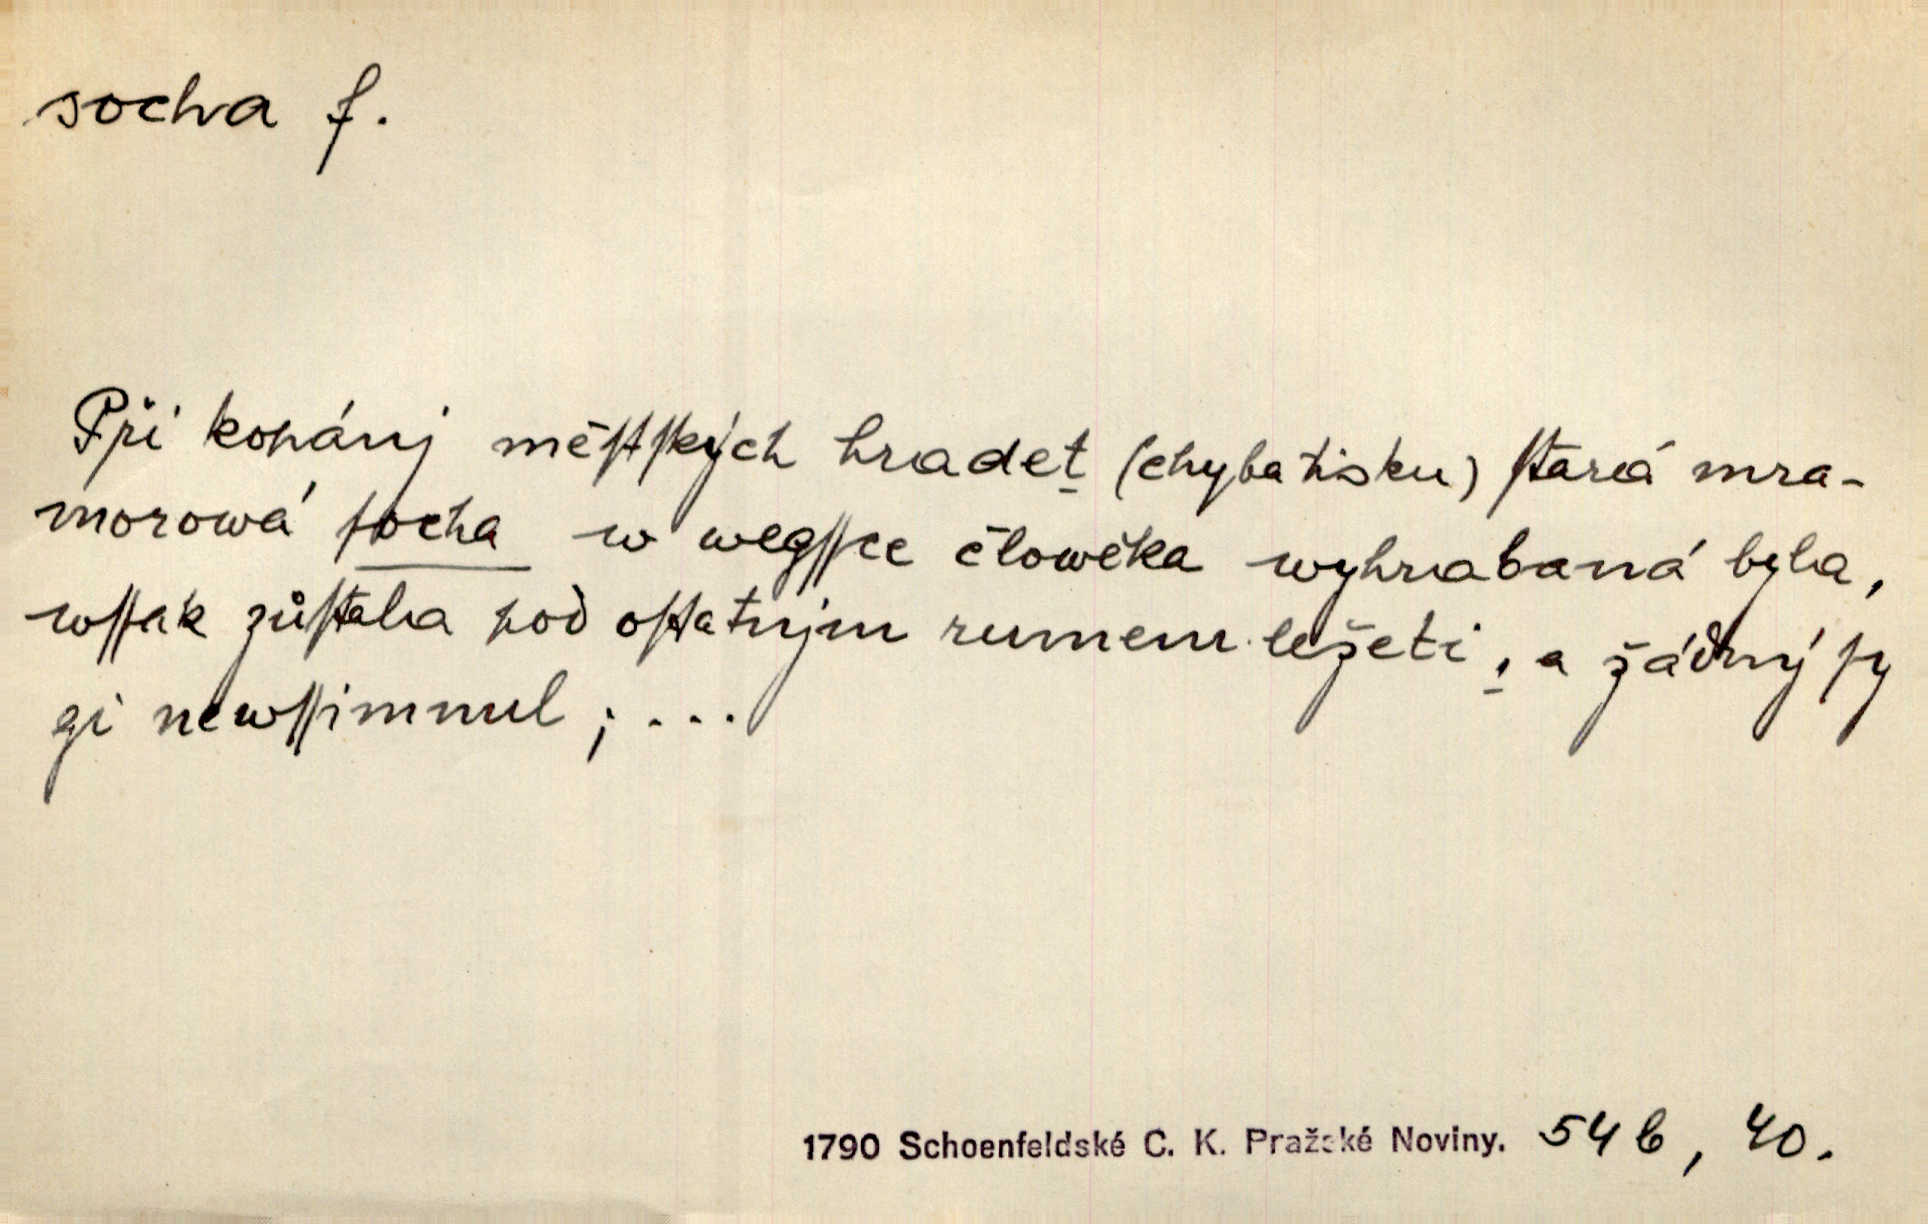 socha f.
Při kopánj měſtſkých hradet (chyba tisku) ſtará mra-
morowá ſocha w wegſſce člowěka wyhrabaná byla,
wſſak zůſtala pod oſtatnjm rumem ležeti, a žádný ſy
gi newſſimnul; ...
1790 Schoenfeldské C. K. Pražské Noviny. 54 b, 40.